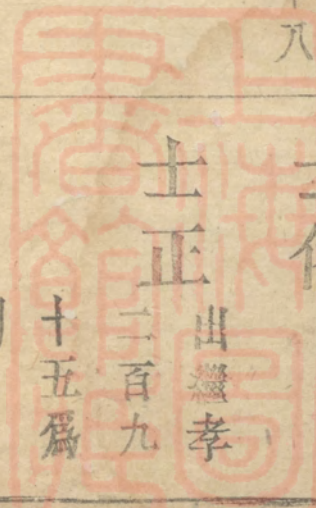 八
士正
出繼孝
二百九
十五爲